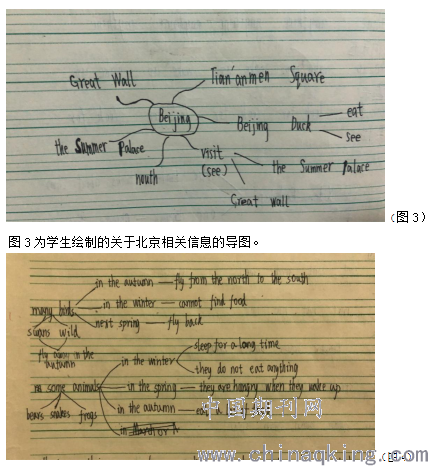 Great Wall
Tian'anmen Square
Beijing
Beijing Duck
eat
see
the Summer Palace
visit
(see)
the Summer Palace
nouth
Great wall
(图 3)
图 3 为学生绘制的关于北京相关信息的导图。
in the autumn — fly from the north to the south
many birds
in the winter — cannot find food
next spring — fly back
swans wild
fly away in the autumn
sleep for a long time
in the winter
they do not eat anything
some animals
in the spring — they are hungry when they wake up
in the autumn — eat
bears snakes frogs
in
中国期刊网
www.chinaqking.com